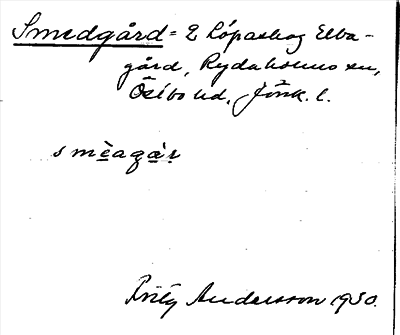 Smedgård = 2 Löpaskog Elba-
gård, Rydaholms sn,
Östbo hd, Jönk. l.
smèagàr
Andersson 1930.